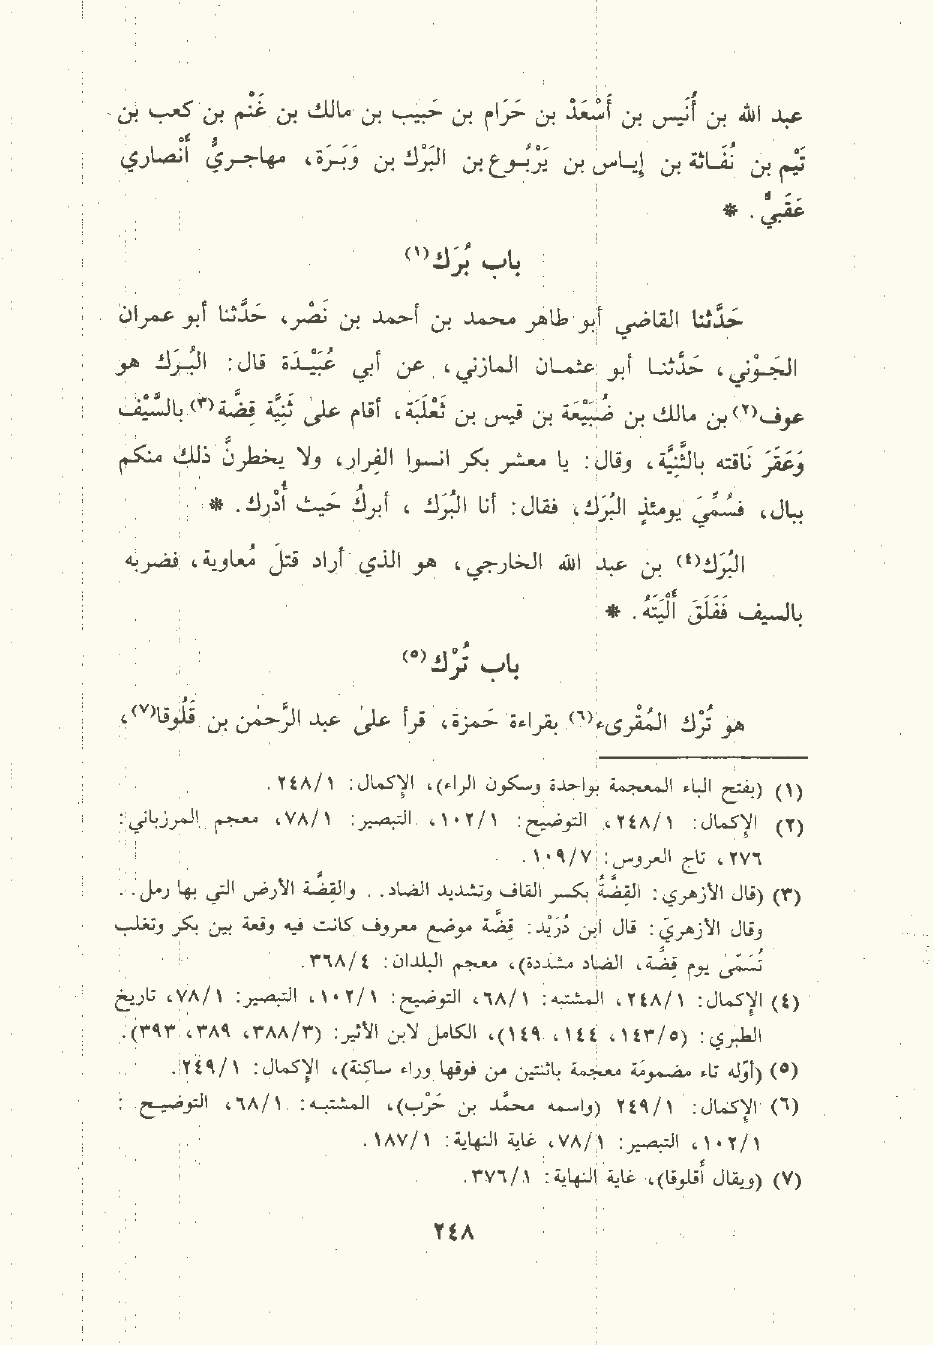 عبد الله بن أُنَيس بن أَسْعَدْ بن حَرَام بن حَبيب بن مالك بن غَنْم بن كعب بن
تَيْم بن نُفَـاثة بن إيـاس بن يَرْبُـوع بن البَرْك بن وَبَـرَة، مهاجـريُّ أنْصاري
عَقَبيُّ . *
باب بُرَك(١)
حَدَّثنا القاضي أبو طاهر محمد بن أحمد بن نَصْر، حَدَّثنا أبو عمران
الجَـوْني، حَدَّثنـا أبو عثمـان المازني، عن أبي عُبَيْـدَة قال: البُـرَك هو
عوف(٢) بن مالك بن ضُبَيْعَة بن قيس بن ثَعْلَبَة، أقام علىٰ ثَنِيَّة قِضَّة(٣) بالسَّيْف
وَعَقَرَ نَاقته بالثَّنِيَّة، وقال: يا معشر بكر انسوا الفِرار، ولا يخطرنَّ ذلك منكم
ببال، فسُمِّيَ يومئذٍ البُرَك، فقال: أنا البُرَك ، أبركُ حَيث أُدْرك. *
البُرَك(٤) بن عبد الله الخارجي، هو الذي أراد قتلَ مُعاوية، فضربه
بالسيف فَفَلَقَ أَلْيَتَهُ. *
باب تُرْك(٥)
هو تُرْك المُقْرىء(٦) بقراءة حَمزة، قرأ علىٰ عبد الرَّحمٰن بن قَلُوقا(٧)،
(١) (بفتح الباء المعجمة بواحدة وسكون الراء)، الإكمال: ٢٤٨/١.
(٢) الإكمال: ٢٤٨/١، التوضيح: ١٠٢/١، التبصير: ٧٨/١، معجم المرزباني:
٢٧٦، تاج العروس: ١٠٩/٧.
(٣) (قال الأزهري: القِضَّةُ بكسر القاف وتشديد الضاد.. والقِضَّة الأرض التي بها رمل..
وقال الأزهريّ: قال ابن دُرَيْد: قِضَّة موضع معروف كانت فيه وقعة بين بكر وتغلب
تُسَمّى يوم قِضَّة، الضاد مشددة)، معجم البلدان: ٣٦٨/٤.
(٤) الإكمال: ٢٤٨/١، المشتبه: ٦٨/١، التوضيح: ١٠٢/١، التبصير: ٧٨/١، تاريخ
الطبري: (١٤٣/٥، ١٤٤، ١٤٩)، الكامل لابن الأثير: (٣٨٨/٣، ٣٨٩، ٣٩٣).
(٥) (أوّله تاء مضمومَة معجمة باثنتين من فوقها وراء ساكنة)، الإكمال: ٢٤٩/١.
(٦) الإكمال: ٢٤٩/١ (واسمه محمَّد بن حَرْب)، المشتبـه: ٦٨/١، التوضيـح:
١٠٢/١، التبصير: ٧٨/١، غاية النهاية: ١٨٧/١.
(٧) (ويقال أَقلوقا)، غاية النهاية: ٣٧٦/١.
٢٤٨